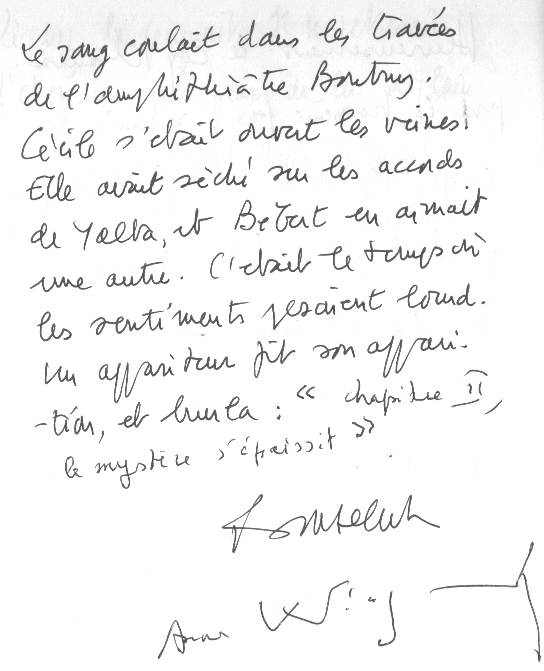 Le sang coulait dans les travées
de l'amphithéâtre Boutmy.
Cécile s'était ouvert les veines.
Elle avait séché sur les accords
de Yalta, et Bébert en aimait
une autre. C'était le temps où
les sentiments pesaient lourd.
Un appariteur fit son appari-
-tion, et hurla : « chapitre II,
le mystère s'épaissit »
Anne